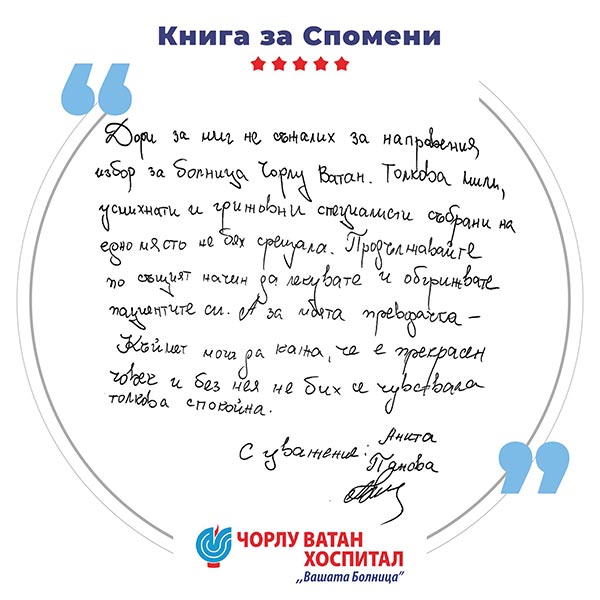 Книга за Спомени
Дори за миг не съжалих за направения
избор за болница Чорлу Ватан. Толкова мили,
усмихнати и грижовни специалисти събрани на
едно място не бях срещала. Продължавайте
по същият начин да лекувате и обгрижвате
пациентите си. А за моята преводачка –
Къймет мога да кажа, че е прекрасен
човек и без нея не бих се чувствала
толкова спокойна.
С уважение: Анита
Панова
ЧОРЛУ ВАТАН
ХОСПИТАЛ
,,Вашата Болница"